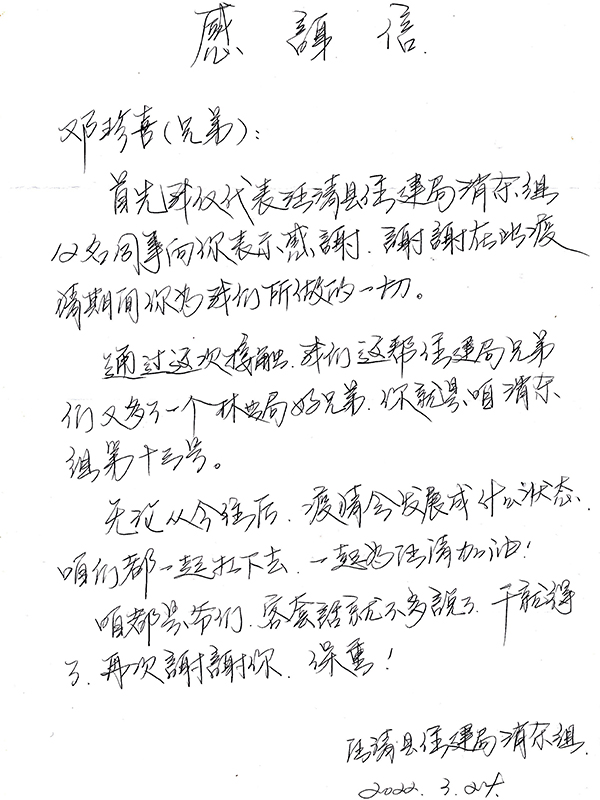 感謝信
邓珍喜(兄弟):
首先我仅代表汪清县住建局消杀组
12名同事向你表示感謝.謝謝在此疫
情期间你为我们所做的一切。
通过这次接触.我们这帮住建局兄弟
们又多了一个林业局好兄弟.你就是咱消杀
组第十三号。
无论从今往后.疫情会发展成什么状态.
咱们都一起扛下去.一起为汪清加油!
咱都是爷们.客套話就不多說了.干就得
了.再次謝謝你.保重!
汪清县住建局消杀组.
2022.3.24.